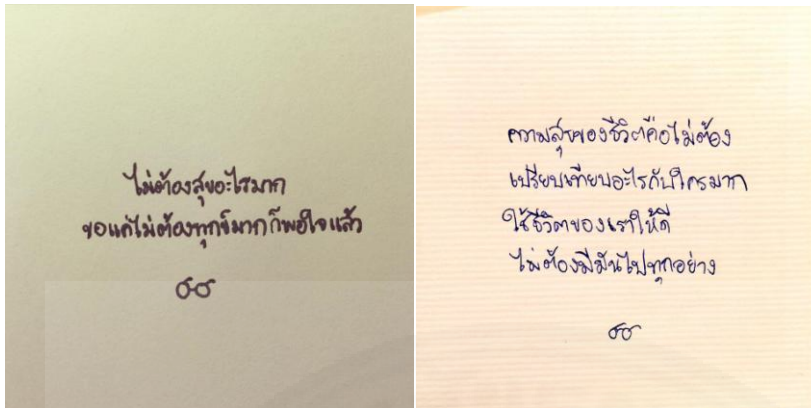 ไม่ต้องสุขอะไรมาก
ขอแค่ไม่ต้องทุกข์มากก็พอใจแล้ว
ความสุขของชีวิตคือไม่ต้อง
เปรียบเทียบอะไรกับใครมาก
ใช้ชีวิตของเราให้ดี
ไม่ต้องมีมันไปทุกอย่าง